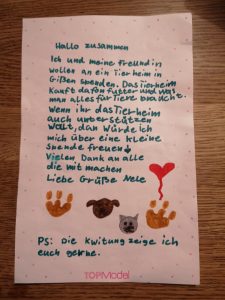 Hallo zusammen
Ich und meine freundin
wollen an ein Tierheim in
Gißen spenden. Das Tierheim
Kauft dafon futter und was
man alles für Tiere braucht.
Wenn ihr das Tierheim
auch unterstützen
wollt, dan würde ich
mich über eine kleine
spende freuen
Vielen Dank an alle
die mit machen
Liebe Grüße Nele
PS: Die Kwitung zeige ich
euch gerne.
TOPModel